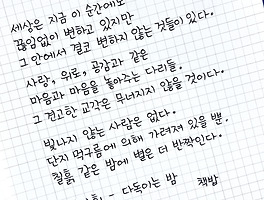 세상은 지금 이 순간에도
끊임없이 변하고 있지만
그 안에서 결코 변하지 않는 것들이 있다.
사랑, 위로, 공감과 같은
마음과 마음을 놓아주는 다리들.
그 견고한 교각은 무너지지 않을 것이다.
빛나지 않는 사람은 없다.
단지 먹구름에 의해 가려져 있을 뿐.
칠흙 같은 밤에 별은 더 반짝인다.
- 다독이는 밤 책밤